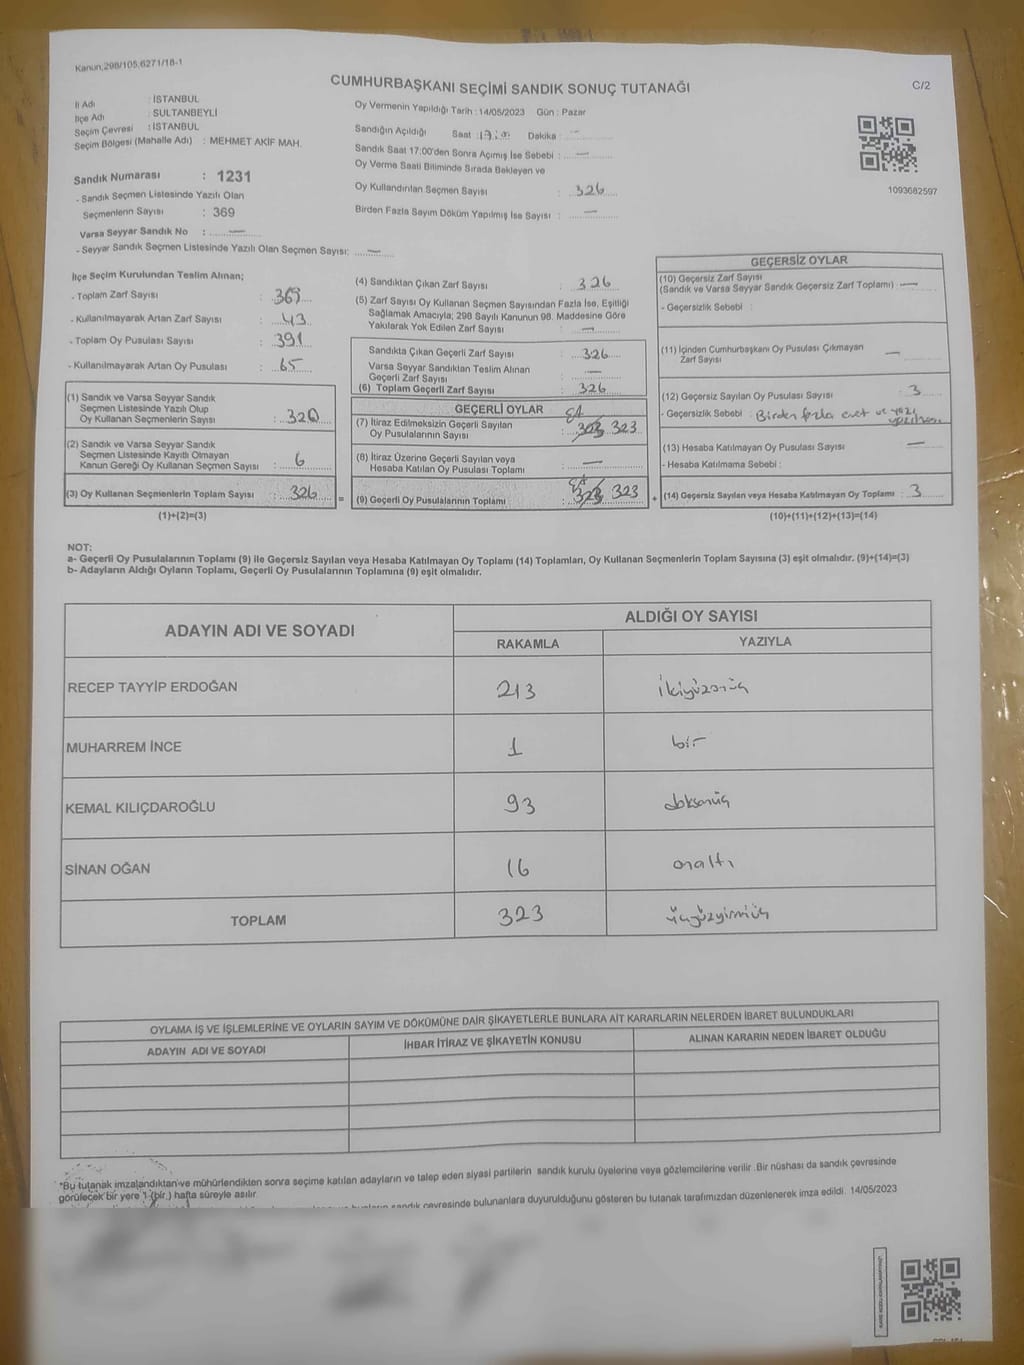 Kanun;298/105,6271/18-1
CUMHURBAŞKANI SEÇİMİ SANDIK SONUÇ TUTANAĞI
C/2
İl Adı : İSTANBUL
İlçe Adı : SULTANBEYLİ
Seçim Çevresi : İSTANBUL
Seçim Bölgesi (Mahalle Adı) : MEHMET AKİF MAH.
Sandık Numarası : 1231
- Sandık Seçmen Listesinde Yazılı Olan
Seçmenlerin Sayısı : 369
Varsa Seyyar Sandık No : —
- Seyyar Sandık Seçmen Listesinde Yazılı Olan Seçmen Sayısı: —
Oy Vermenin Yapıldığı Tarih : 14/05/2023 Gün : Pazar
Sandığın Açıldığı Saat : 17:00 Dakika : —
Sandık Saat 17:00'den Sonra Açımış İse Sebebi : —
Oy Verme Saati Bitiminde Sırada Bekleyen ve
Oy Kullandırılan Seçmen Sayısı : 326
Birden Fazla Sayım Döküm Yapılmış İse Sayısı : —
1093682597
İlçe Seçim Kurulundan Teslim Alınan;
- Toplam Zarf Sayısı : 369
- Kullanılmayarak Artan Zarf Sayısı : 43
- Toplam Oy Pusulası Sayısı : 391
- Kullanılmayarak Artan Oy Pusulası : 65
(1) Sandık ve Varsa Seyyar Sandık
Seçmen Listesinde Yazılı Olup
Oy Kullanan Seçmenlerin Sayısı : 320
(2) Sandık ve Varsa Seyyar Sandık
Seçmen Listesinde Kayıtlı Olmayan
Kanun Gereği Oy Kullanan Seçmen Sayısı : 6
(3) Oy Kullanan Seçmenlerin Toplam Sayısı : 326 =
(1)+(2)=(3)
(4) Sandıktan Çıkan Zarf Sayısı : 326
(5) Zarf Sayısı Oy Kullanan Seçmen Sayısından Fazla İse, Eşitliği
Sağlamak Amacıyla; 298 Sayılı Kanunun 98. Maddesine Göre
Yakılarak Yok Edilen Zarf Sayısı : —
Sandıkta Çıkan Geçerli Zarf Sayısı : 326
Varsa Seyyar Sandıktan Teslim Alınan
Geçerli Zarf Sayısı : —
(6) Toplam Geçerli Zarf Sayısı : 326
GEÇERLİ OYLAR
(7) İtiraz Edilmeksizin Geçerli Sayılan
Oy Pusulalarının Sayısı : 323
(8) İtiraz Üzerine Geçerli Sayılan veya
Hesaba Katılan Oy Pusulası Toplamı : —
(9) Geçerli Oy Pusulalarının Toplamı : 323 323 +
GEÇERSİZ OYLAR
(10) Geçersiz Zarf Sayısı
(Sandık ve Varsa Seyyar Sandık Geçersiz Zarf Toplamı) : —
- Geçersizlik Sebebi :
(11) İçinden Cumhurbaşkanı Oy Pusulası Çıkmayan
Zarf Sayısı : —
(12) Geçersiz Sayılan Oy Pusulası Sayısı : 3
- Geçersizlik Sebebi : Birden fazla evet ve yazı
yazılması
(13) Hesaba Katılmayan Oy Pusulası Sayısı : —
- Hesaba Katılmama Sebebi :
(14) Geçersiz Sayılan veya Hesaba Katılmayan Oy Toplamı : 3
(10)+(11)+(12)+(13)=(14)
NOT:
a- Geçerli Oy Pusulalarının Toplamı (9) ile Geçersiz Sayılan veya Hesaba Katılmayan Oy Toplamı (14) Toplamları, Oy Kullanan Seçmenlerin Toplam Sayısına (3) eşit olmalıdır. (9)+(14)=(3)
b- Adayların Aldığı Oyların Toplamı, Geçerli Oy Pusulalarının Toplamına (9) eşit olmalıdır.
ADAYIN ADI VE SOYADI
ALDIĞI OY SAYISI
RAKAMLA YAZIYLA
RECEP TAYYİP ERDOĞAN 213 ikiyüzonüç
MUHARREM İNCE 1 bir
KEMAL KILIÇDAROĞLU 93 doksanüç
SİNAN OĞAN 16 onaltı
TOPLAM 323 üçyüzyirmiüç
OYLAMA İŞ VE İŞLEMLERİNE VE OYLARIN SAYIM VE DÖKÜMÜNE DAİR ŞİKAYETLERLE BUNLARA AİT KARARLARIN NELERDEN İBARET BULUNDUKLARI
ADAYIN ADI VE SOYADI İHBAR İTİRAZ VE ŞİKAYETİN KONUSU ALINAN KARARIN NEDEN İBARET OLDUĞU
*Bu tutanak imzalandıktan ve mühürlendikten sonra seçime katılan adayların ve talep eden siyasi partilerin sandık kurulu üyelerine veya gözlemcilerine verilir .Bir nüshası da sandık çevresinde
görülecek bir yere 1 (bir ) hafta süreyle asılır.
sandık çevresinde bulunanlara duyurulduğunu gösteren bu tutanak tarafımızdan düzenlenerek imza edildi. 14/05/2023